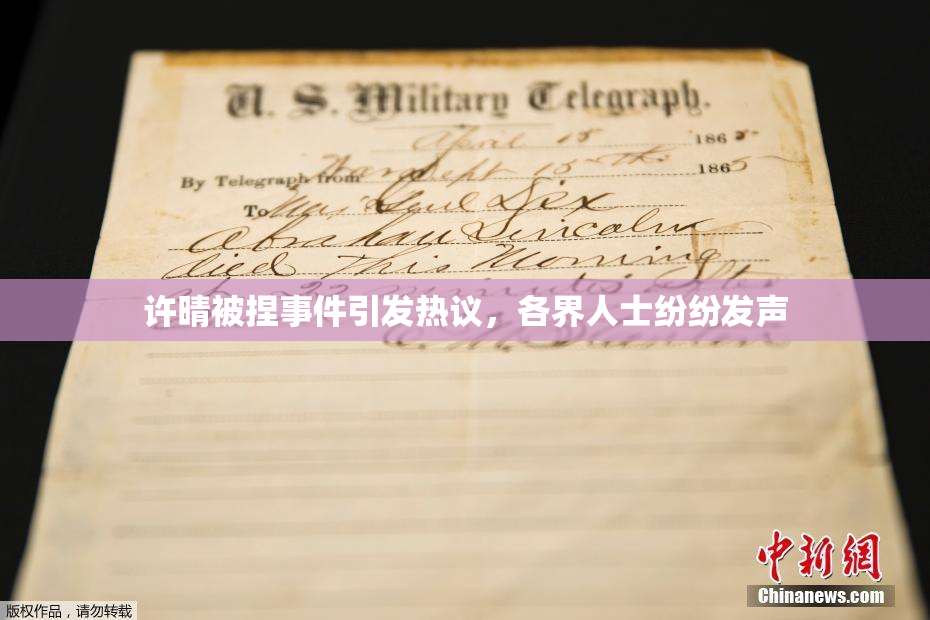 U. S. Military Telegraph.
April 15 1865
By Telegraph from War Dept 15th 1865
To Maj Genl Dix
Abraham Lincoln
died This Morning
at 22 minutes after
许晴被捏事件引发热议，各界人士纷纷发声
E. M. Stanton
中新网
Chinanews.com
版权作品，请勿转载